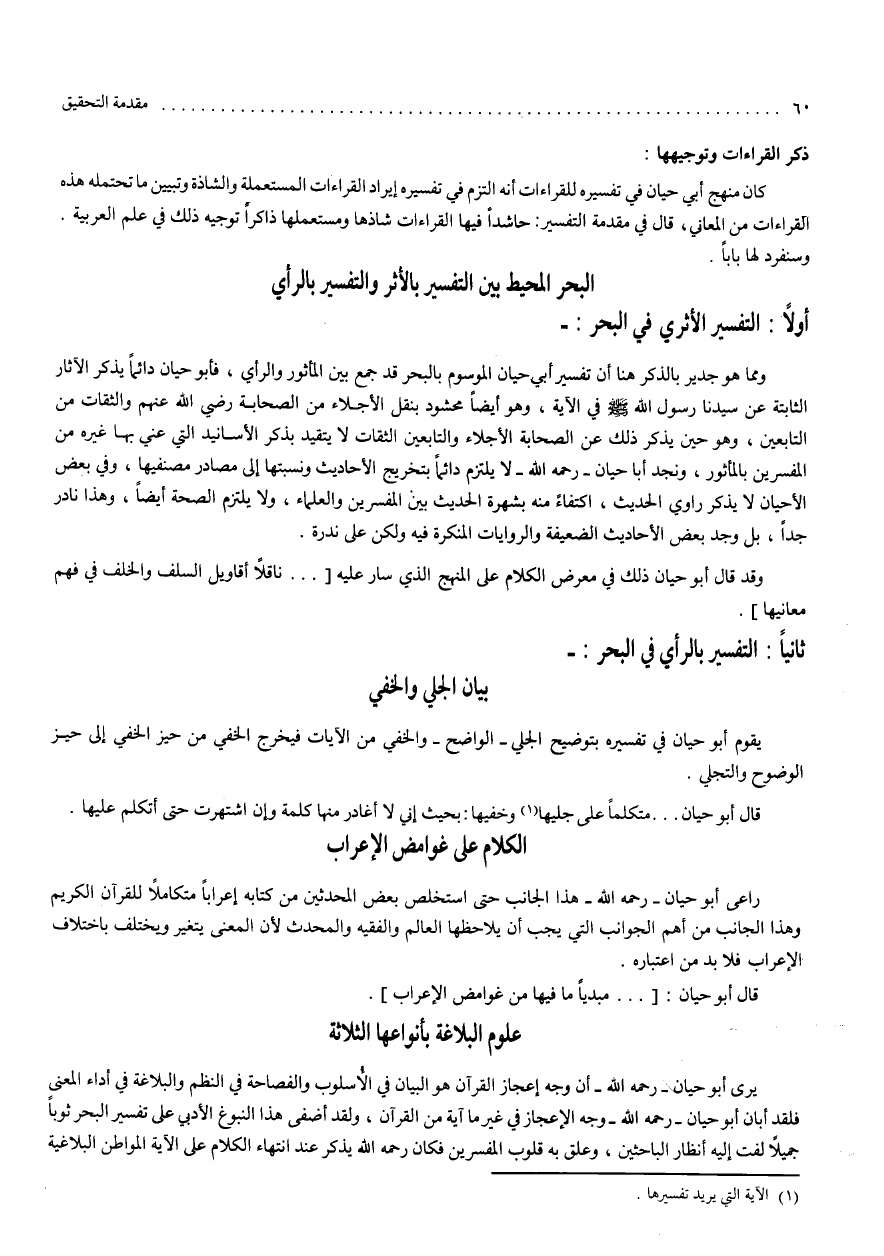 ٦٠ ................................................................ مقدمة التحقيق
ذكر القراءات وتوجيهها :
كان منهج أبي حيان في تفسيره للقراءات أنه التزم في تفسيره إيراد القراءات المستعملة والشاذة وتبيين ما تحتمله هذه
القراءات من المعاني، قال في مقدمة التفسير: حاشداً فيها القراءات شاذها ومستعملها ذاكراً توجيه ذلك في علم العربية .
وسنفرد لها باباً .
البحر المحيط بين التفسير بالأثر والتفسير بالرأي
أولاً : التفسير الأثري في البحر : ـ
ومما هو جدير بالذكر هنا أن تفسير أبي حيان الموسوم بالبحر قد جمع بين المأثور والرأي ، فأبو حيان دائماً يذكر الآثار
الثابتة عن سيدنا رسول الله ﷺ في الآية ، وهو أيضاً محشود بنقل الأجلاء من الصحابة رضي الله عنهم والثقات من
التابعين ، وهو حين يذكر ذلك عن الصحابة الأجلاء والتابعين الثقات لا يتقيد بذكر الأسانيد التي عني بها غيره من
المفسرين بالمأثور ، ونجد أبا حيان ـ رحمه الله ـ لا يلتزم دائماً بتخريج الأحاديث ونسبتها إلى مصادر مصنفيها ، وفي بعض
الأحيان لا يذكر راوي الحديث ، اكتفاءً منه بشهرة الحديث بين المفسرين والعلماء ، ولا يلتزم الصحة أيضاً ، وهذا نادر
جداً ، بل وجد بعض الأحاديث الضعيفة والروايات المنكرة فيه ولكن على ندرة .
وقد قال أبو حيان ذلك في معرض الكلام على المنهج الذي سار عليه [ ... ناقلاً أقاويل السلف والخلف في فهم
معانيها ] .
ثانياً : التفسير بالرأي في البحر : ـ
بيان الجلي والخفي
يقوم أبو حيان في تفسيره بتوضيح الجلي ـ الواضح ـ والخفي من الآيات فيخرج الخفي من حيز الخفي إلى حيـز
الوضوح والتجلي .
قال أبو حيان . . . متكلماً على جليها(١) وخفيها : بحيث إني لا أغادر منها كلمة وإن اشتهرت حتى أتكلم عليها .
الكلام على غوامض الإعراب
راعى أبو حيان ـ رحمه الله ـ هذا الجانب حتى استخلص بعض المحدثين من كتابه إعراباً متكاملاً للقرآن الكريم
وهذا الجانب من أهم الجوانب التي يجب أن يلاحظها العالم والفقيه والمحدث لأن المعنى يتغير ويختلف باختلاف
الإعراب فلا بد من اعتباره .
قال أبو حيان : [ ... مبدياً ما فيها من غوامض الإعراب ] .
علوم البلاغة بأنواعها الثلاثة
يرى أبو حيان ـ رحمه الله ـ أن وجه إعجاز القرآن هو البيان في الأُسلوب والفصاحة في النظم والبلاغة في أداء المعنى
فلقد أبان أبو حيان ـ رحمه الله ـ وجه الإعجاز في غير ما آية من القرآن ، ولقد أضفى هذا النبوغ الأدبي على تفسير البحر ثوباً
جميلاً لفت إليه أنظار الباحثين ، وعلق به قلوب المفسرين فكان رحمه الله يذكر عند انتهاء الكلام على الآية المواطن البلاغية
(١) الآية التي يريد تفسيرها .